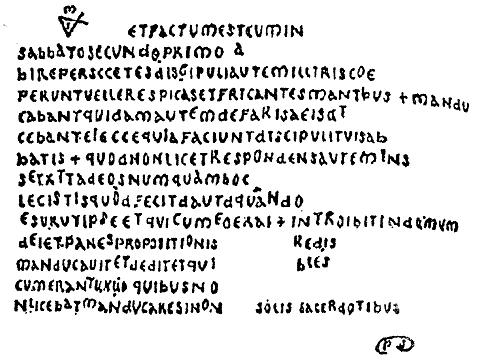 ETFACTUMESTEUMIN
SABBATOSECUNdOPRIMO A
bIREPERSCCETESdISGIPULIAUTEMILLIRISCOE
PERUNTVELLERESPICASETFRICANTESMANTbUS + MANdU
CAbANTQUIdAMAUTEMdEFARISAEISdT
CEbANTEIECCEQUIAFACIUNTdISCIPULITUISAb
bATIS + QUOdNONLICETRESPONdENSAUTEMINS
SETXTTAdEOSNUMQUAMhOC
LECISTISQUOdFECITdAUTdQUANdO
ESURUTIPSEETQUICUMEOERAT + INTROIbITINdOMUM
dEIETPANESPROPOSITIONIS REdIS
MANdUCAUITETdEdITETQUI bLES
CUMERANTUXUO QUIbUSNO
NLICEbATMANdUCARESINON SOLIS SACERdOTIbUS
PS